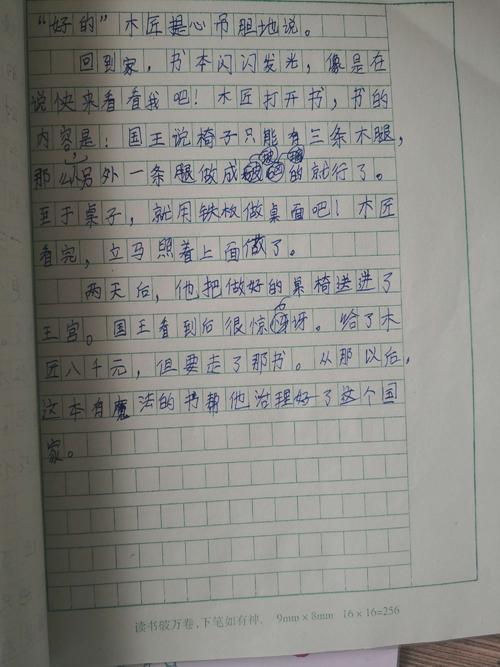 “好的”木匠提心吊胆地说。
回到家，书本闪闪发光，像是在
说快来看看我吧！木匠打开书，书的
内容是：国王说椅子只能有三条木腿，
那么另外一条腿做成玻璃的就行了。
至于桌子，就用铁板做桌面吧！木匠
看完，立马照着上面做了。
两天后，他把做好的桌椅送进了
王宫。国王看到后很惊讶。给了木
匠八千元，但要走了那书。从那以后，
这本有魔法的书帮他治理好了这个国
家。
读书破万卷，下笔如有神. 9mm×8mm 16×16=256